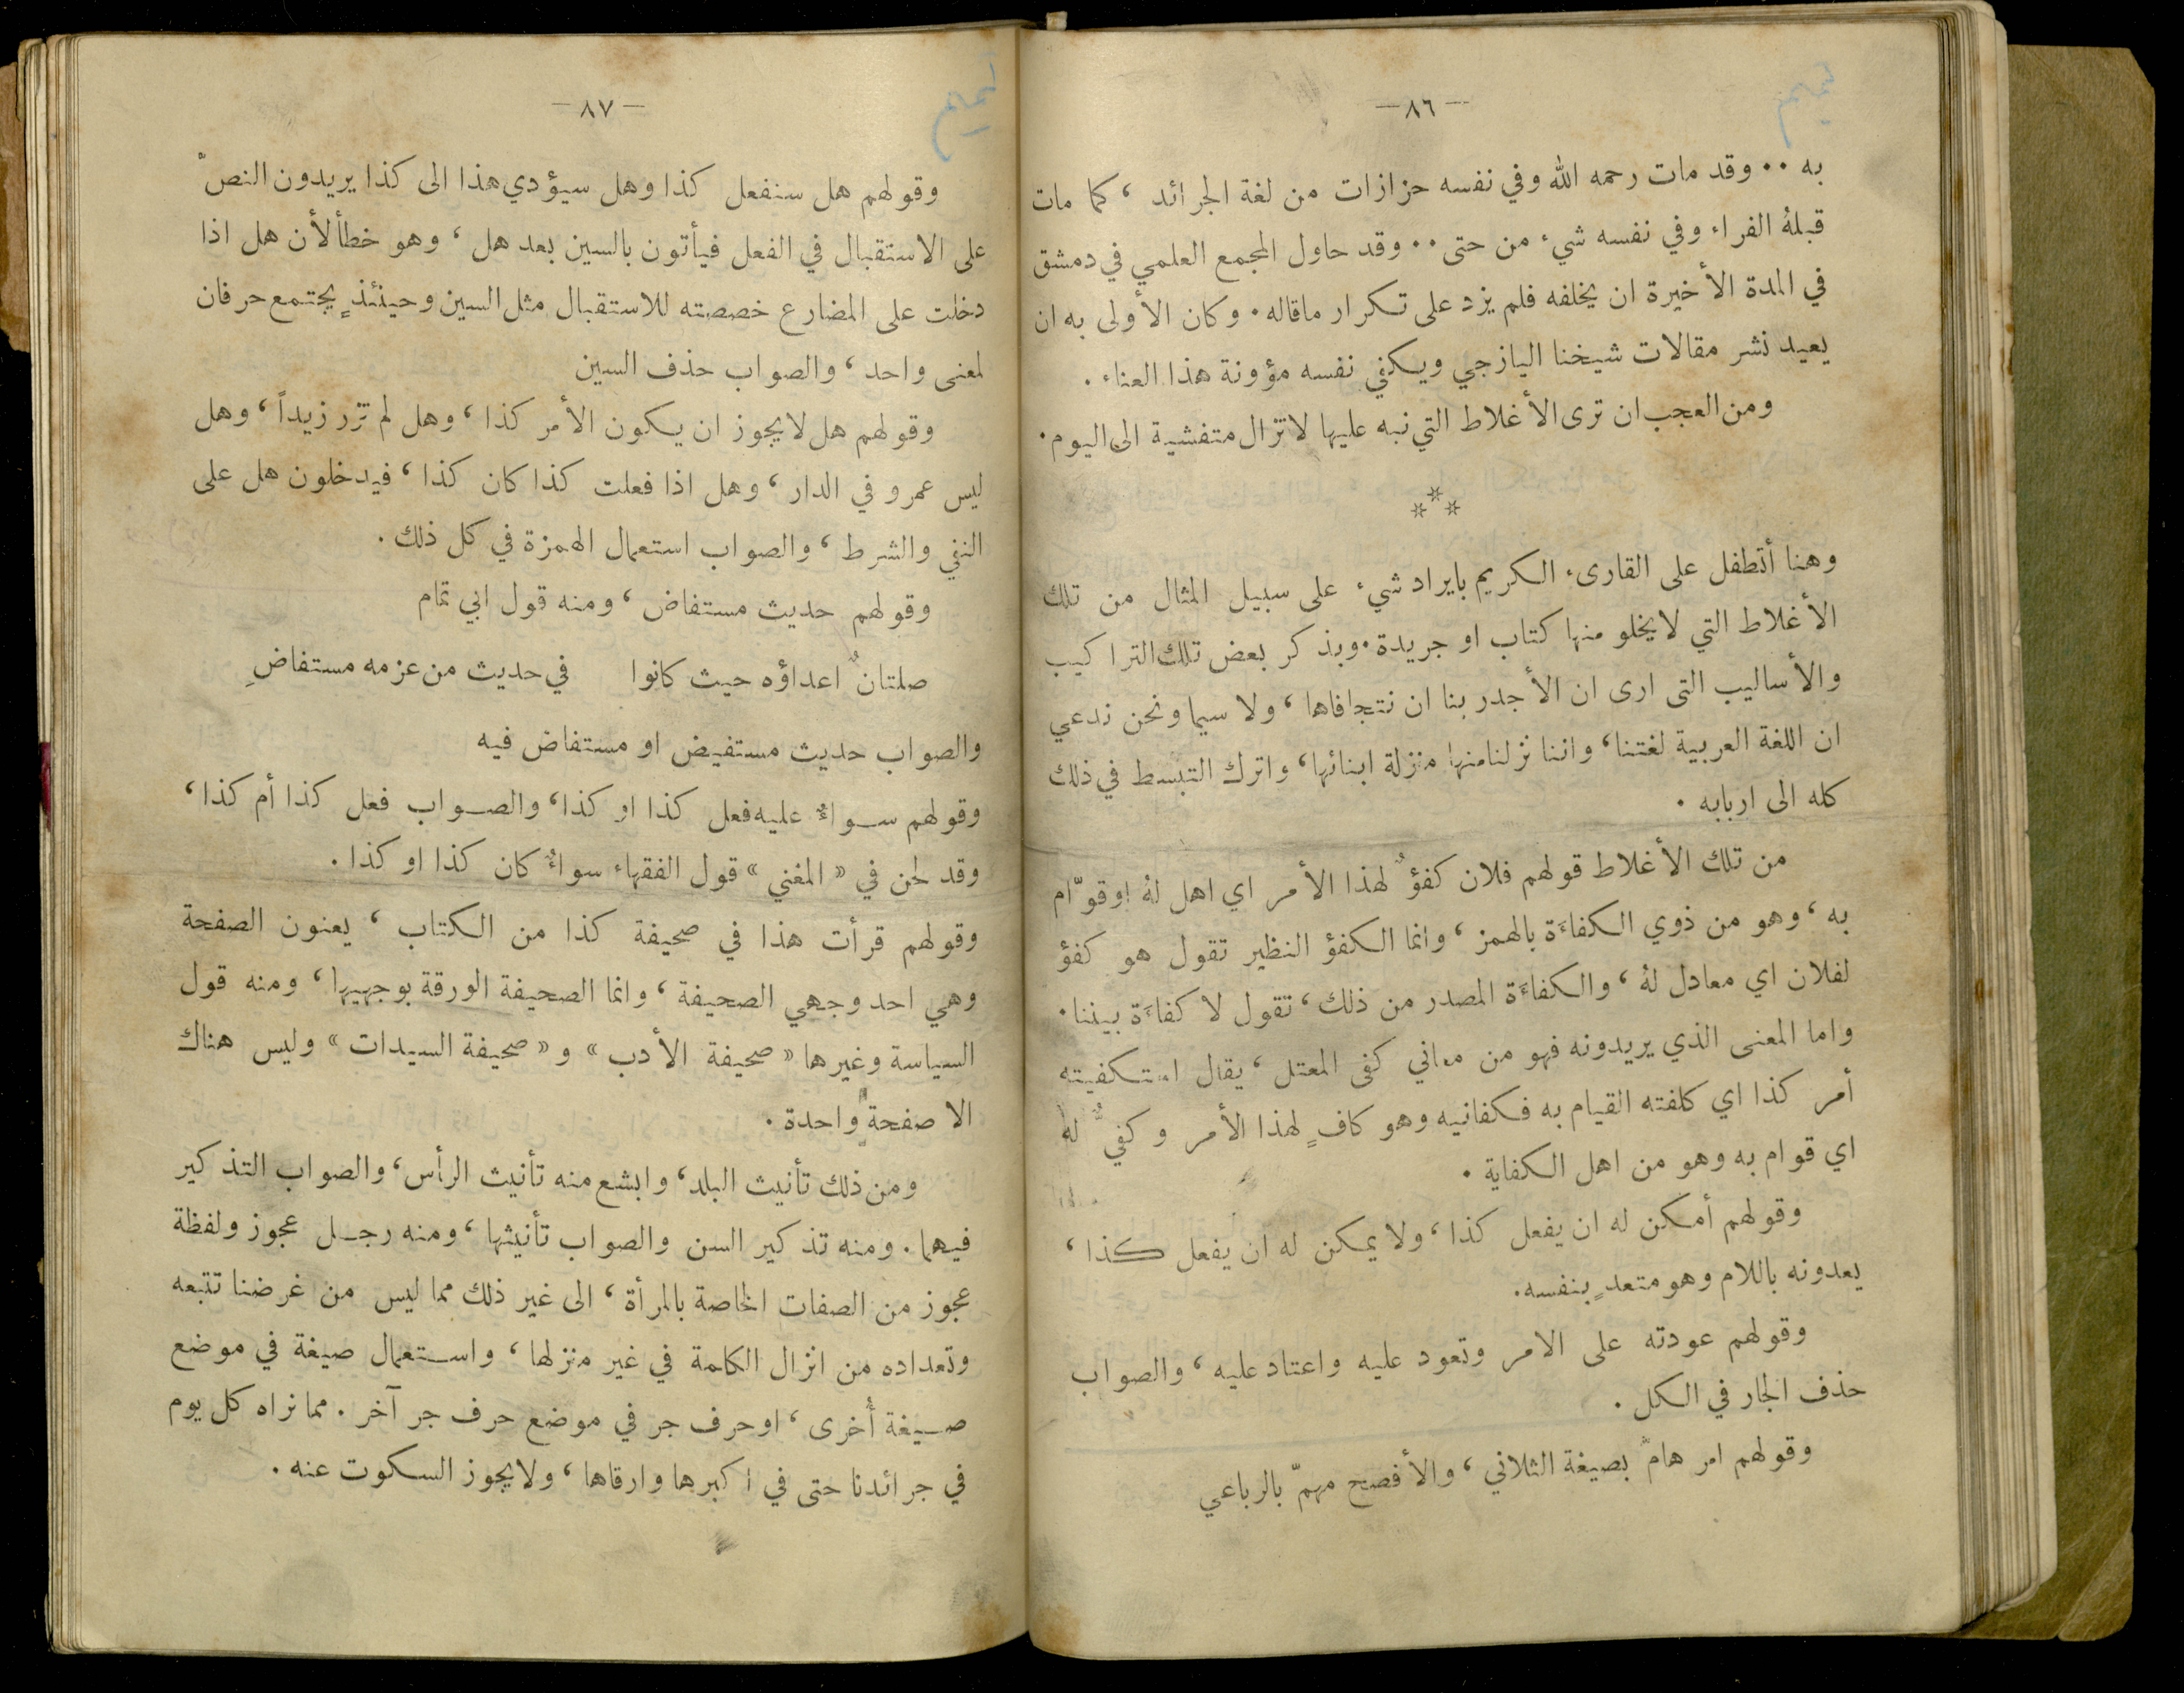 — ٨٦ —
به ٠٠ وقد مات رحمه الله وفي نفسه حزازات من لغة الجرائد ، كما مات
قبلهُ الفراء وفي نفسه شيء من حتى ٠٠ وقد حاول المجمع العلمي في دمشق
في المدة الأخيرة ان يخلفه فلم يزد على تكرار ماقاله . وكان الأولى به ان
يعيد نشر مقالات شيخنا اليازجي ويكفي نفسه مؤونة هذا العناء .
ومن العجب ان ترى الأغلاط التي نبه عليها لاتزال متفشية الى اليوم .
***
وهنا أتطفل على القارىء الكريم بايراد شيء على سبيل المثال من تلك
الأغلاط التي لايخلو منها كتاب او جريدة . وبذكر بعض تلك التراكيب
والأساليب التى ارى ان الأجدر بنا ان نتجافاها ، ولا سيما ونحن ندعي
ان اللغة العربية لغتنا ، واننا نزلنا منها منزلة ابنائها ، واترك التبسط في ذلك
كله الى اربابه .
من تلك الأغلاط قولهم فلان كفؤٌ لهذا الأمر اي اهل لهُ او قوّام
به ، وهو من ذوي الكفاءَة بالهمز ، وانما الكفؤ النظير تقول هو كفؤ
لفلان اي معادل لهُ ، والكفاءَة المصدر من ذلك ، تقول لا كفاءَة بيننا .
واما المعنى الذي يريدونه فهو من معاني كفى المعتل ، يقال استكفيته
أمر كذا اي كلفته القيام به فكفانيه وهو كافٍ لهذا الأمر وكفيٌّ لهُ
اي قوام به وهو من اهل الكفاية .
وقولهم أمكن له ان يفعل كذا ، ولا يمكن له ان يفعل كذا ،
يعدونه باللام وهو متعدٍ بنفسه .
وقولهم عودته على الامر وتعود عليه واعتاد عليه ، والصواب
حذف الجار في الكل .
وقولهم امر هامّ بصيغة الثلاثي ، والأفصح مهمّ بالرباعي
— ٨٧ —
وقولهم هل سنفعل كذا وهل سيؤدي هذا الى كذا يريدون النصّ
على الاستقبال في الفعل فيأتون بالسين بعد هل ، وهو خطأ لأن هل اذا
دخلت على المضارع خصصته للاستقبال مثل السين وحينئذٍ يجتمع حرفان
لمعنى واحد ، والصواب حذف السين
وقولهم هل لايجوز ان يكون الأمر كذا ، وهل لم تزر زيداً ، وهل
ليس عمرو في الدار ، وهل اذا فعلت كذا كان كذا ، فيدخلون هل على
النفي والشرط ، والصواب استعمال الهمزة في كل ذلك .
وقولهم حديث مستفاض ، ومنه قول ابي تمام
صلتانٌ اعداؤه حيث كانوا في حديث من عزمه مستفاضِ
والصواب حديث مستفيض او مستفاض فيه
وقولهم سواءٌ عليه فعل كذا او كذا ، والصواب فعل كذا أم كذا ،
وقد لحن في « المغني » قول الفقهاء سواءٌ كان كذا او كذا .
وقولهم قرأت هذا في صحيفة كذا من الكتاب ، يعنون الصفحة
وهي احد وجهي الصحيفة ، وانما الصحيفة الورقة بوجهيها ، ومنه قول
السياسة وغيرها « صحيفة الأدب » و « صحيفة السيدات » وليس هناك
الا صفحة واحدة .
ومن ذلك تأنيث البلد ، وابشع منه تأنيث الرأس ، والصواب التذكير
فيهما . ومنه تذكير السن والصواب تأنيثها ، ومنه رجل عجوز ولفظة
عجوز من الصفات الخاصة بالمرأة ، الى غير ذلك مما ليس من غرضنا تتبعه
وتعداده من انزال الكلمة في غير منزلها ، واستعمال صيغة في موضع
صيغة أُخرى ، او حرف جر في موضع حرف جر آخر . مما نراه كل يوم
في جرائدنا حتى في اكبرها وارقاها ، ولايجوز السكوت عنه .